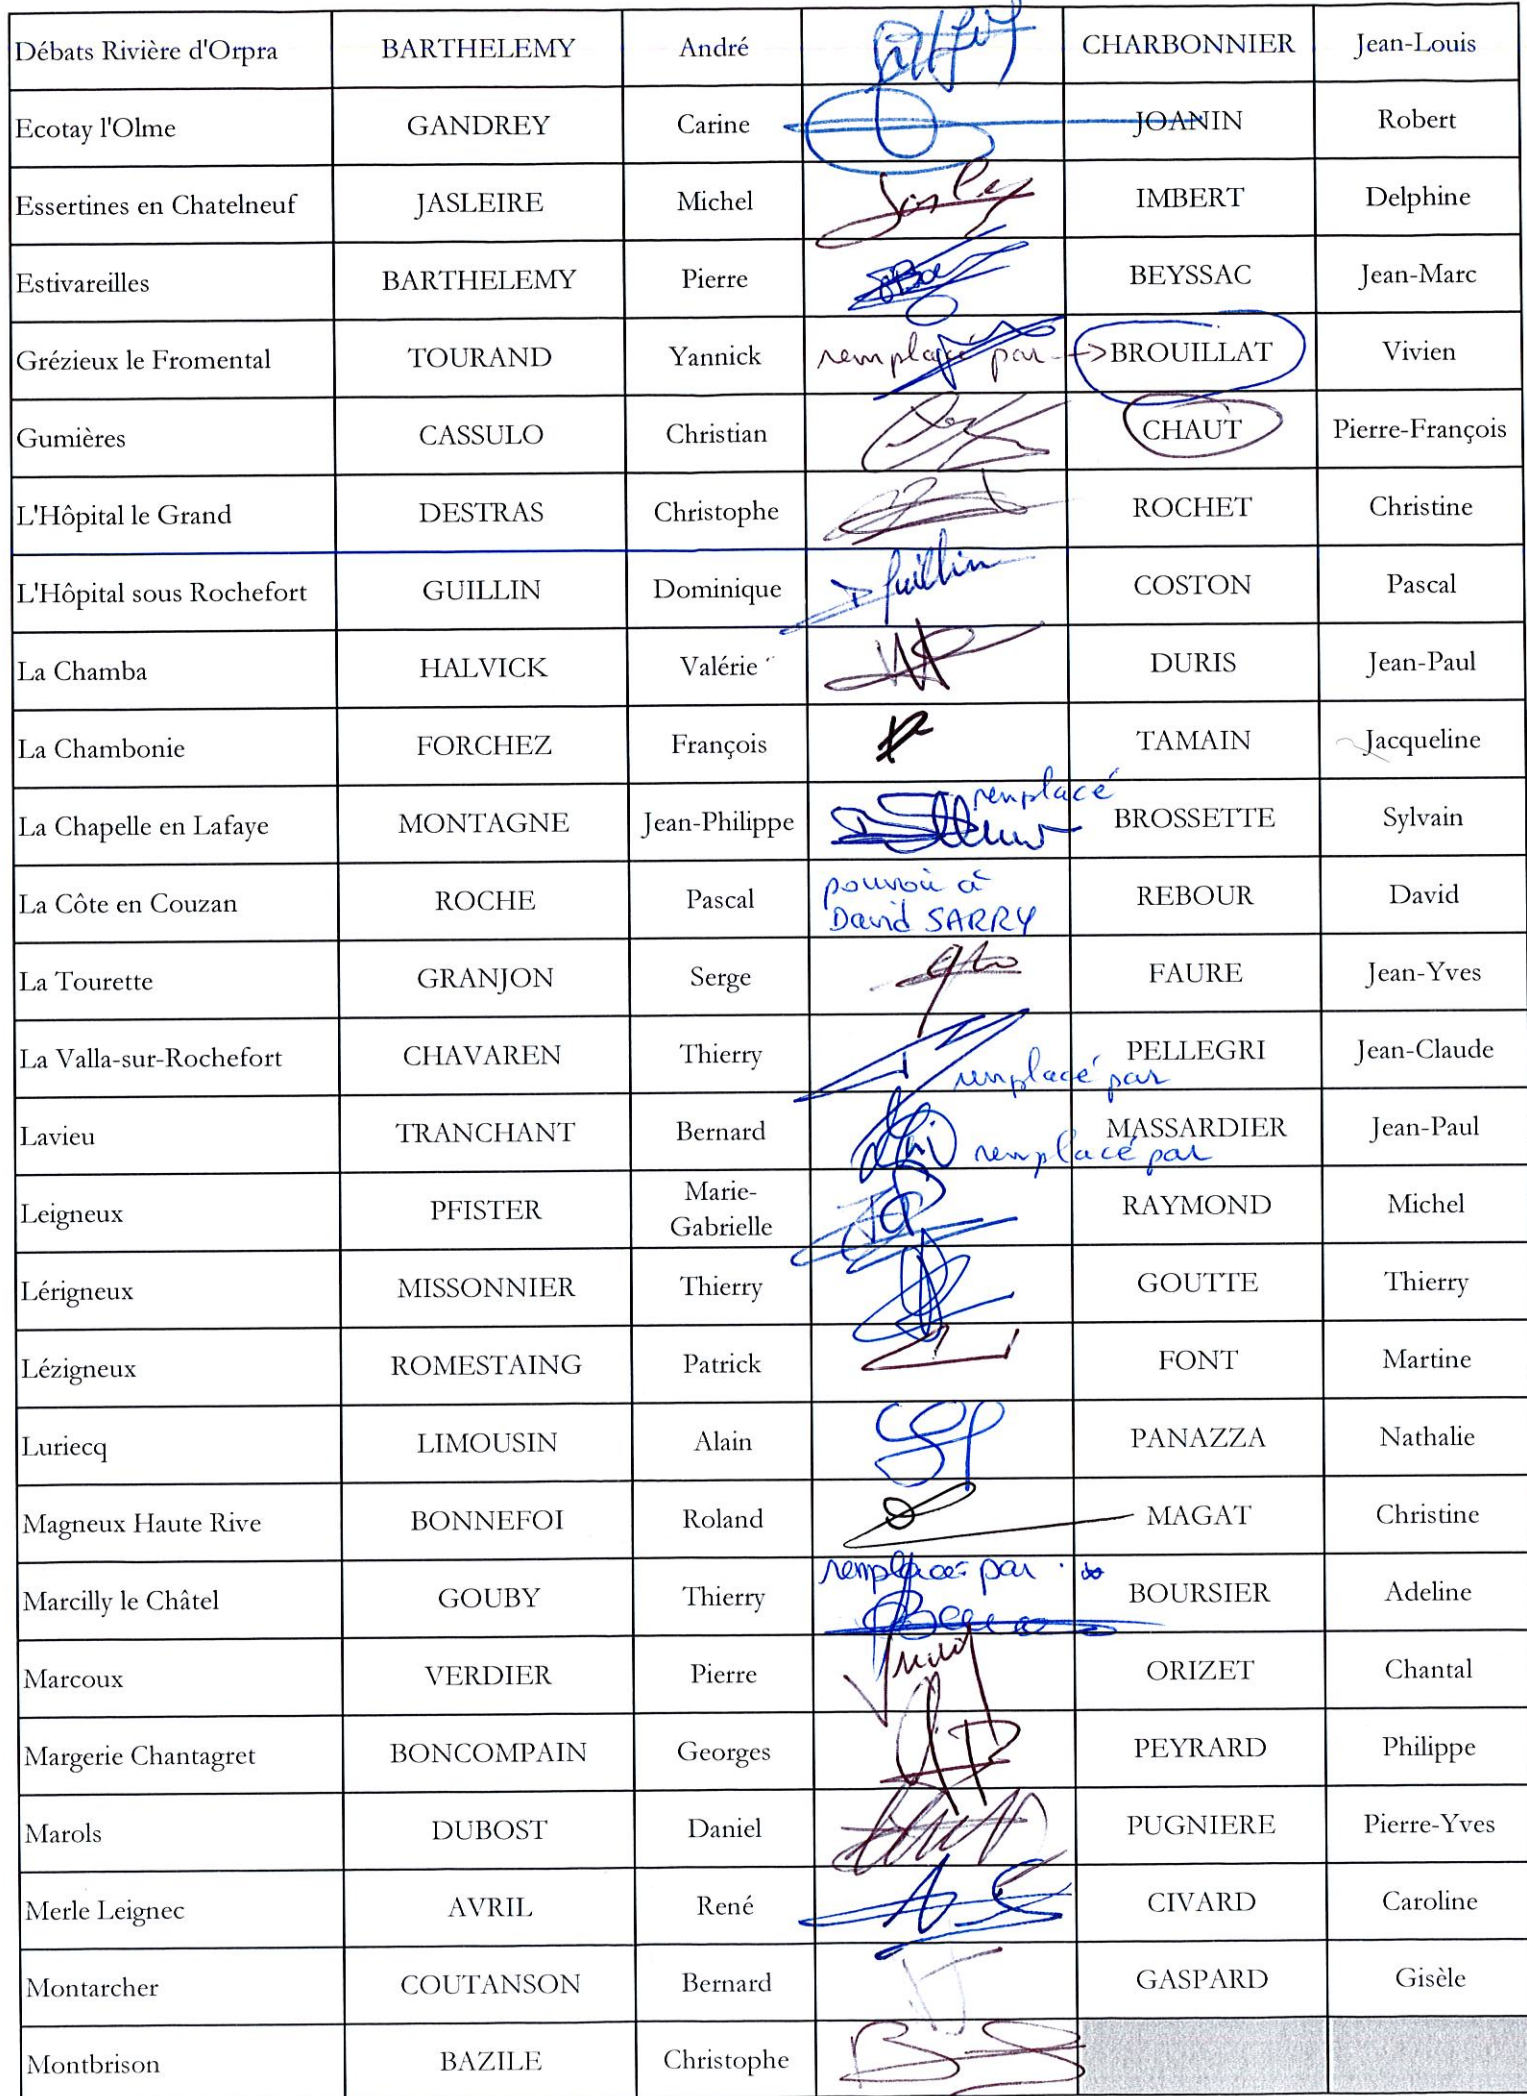 Débats Rivière d'Orpra BARTHELEMY André CHARBONNIER Jean-Louis
Ecotay l'Olme GANDREY Carine JOANIN Robert
Essertines en Chatelneuf JASLEIRE Michel IMBERT Delphine
Estivareilles BARTHELEMY Pierre BEYSSAC Jean-Marc
Grézieux le Fromental TOURAND Yannick remplacé par -> BROUILLAT Vivien
Gumières CASSULO Christian CHAUT Pierre-François
L'Hôpital le Grand DESTRAS Christophe ROCHET Christine
L'Hôpital sous Rochefort GUILLIN Dominique D Guillin COSTON Pascal
La Chamba HALVICK Valérie DURIS Jean-Paul
La Chambonie FORCHEZ François TAMAIN Jacqueline
La Chapelle en Lafaye MONTAGNE Jean-Philippe remplacé BROSSETTE Sylvain
La Côte en Couzan ROCHE Pascal pouvoir à David SARRY REBOUR David
La Tourette GRANJON Serge FAURE Jean-Yves
La Valla-sur-Rochefort CHAVAREN Thierry remplacé par PELLEGRI Jean-Claude
Lavieu TRANCHANT Bernard remplacé par MASSARDIER Jean-Paul
Leigneux PFISTER Marie-Gabrielle RAYMOND Michel
Lérigneux MISSONNIER Thierry GOUTTE Thierry
Lézigneux ROMESTAING Patrick FONT Martine
Luriecq LIMOUSIN Alain PANAZZA Nathalie
Magneux Haute Rive BONNEFOI Roland MAGAT Christine
Marcilly le Châtel GOUBY Thierry remplacé par BOURSIER Adeline
Marcoux VERDIER Pierre ORIZET Chantal
Margerie Chantagret BONCOMPAIN Georges PEYRARD Philippe
Marols DUBOST Daniel PUGNIERE Pierre-Yves
Merle Leignec AVRIL René CIVARD Caroline
Montarcher COUTANSON Bernard GASPARD Gisèle
Montbrison BAZILE Christophe